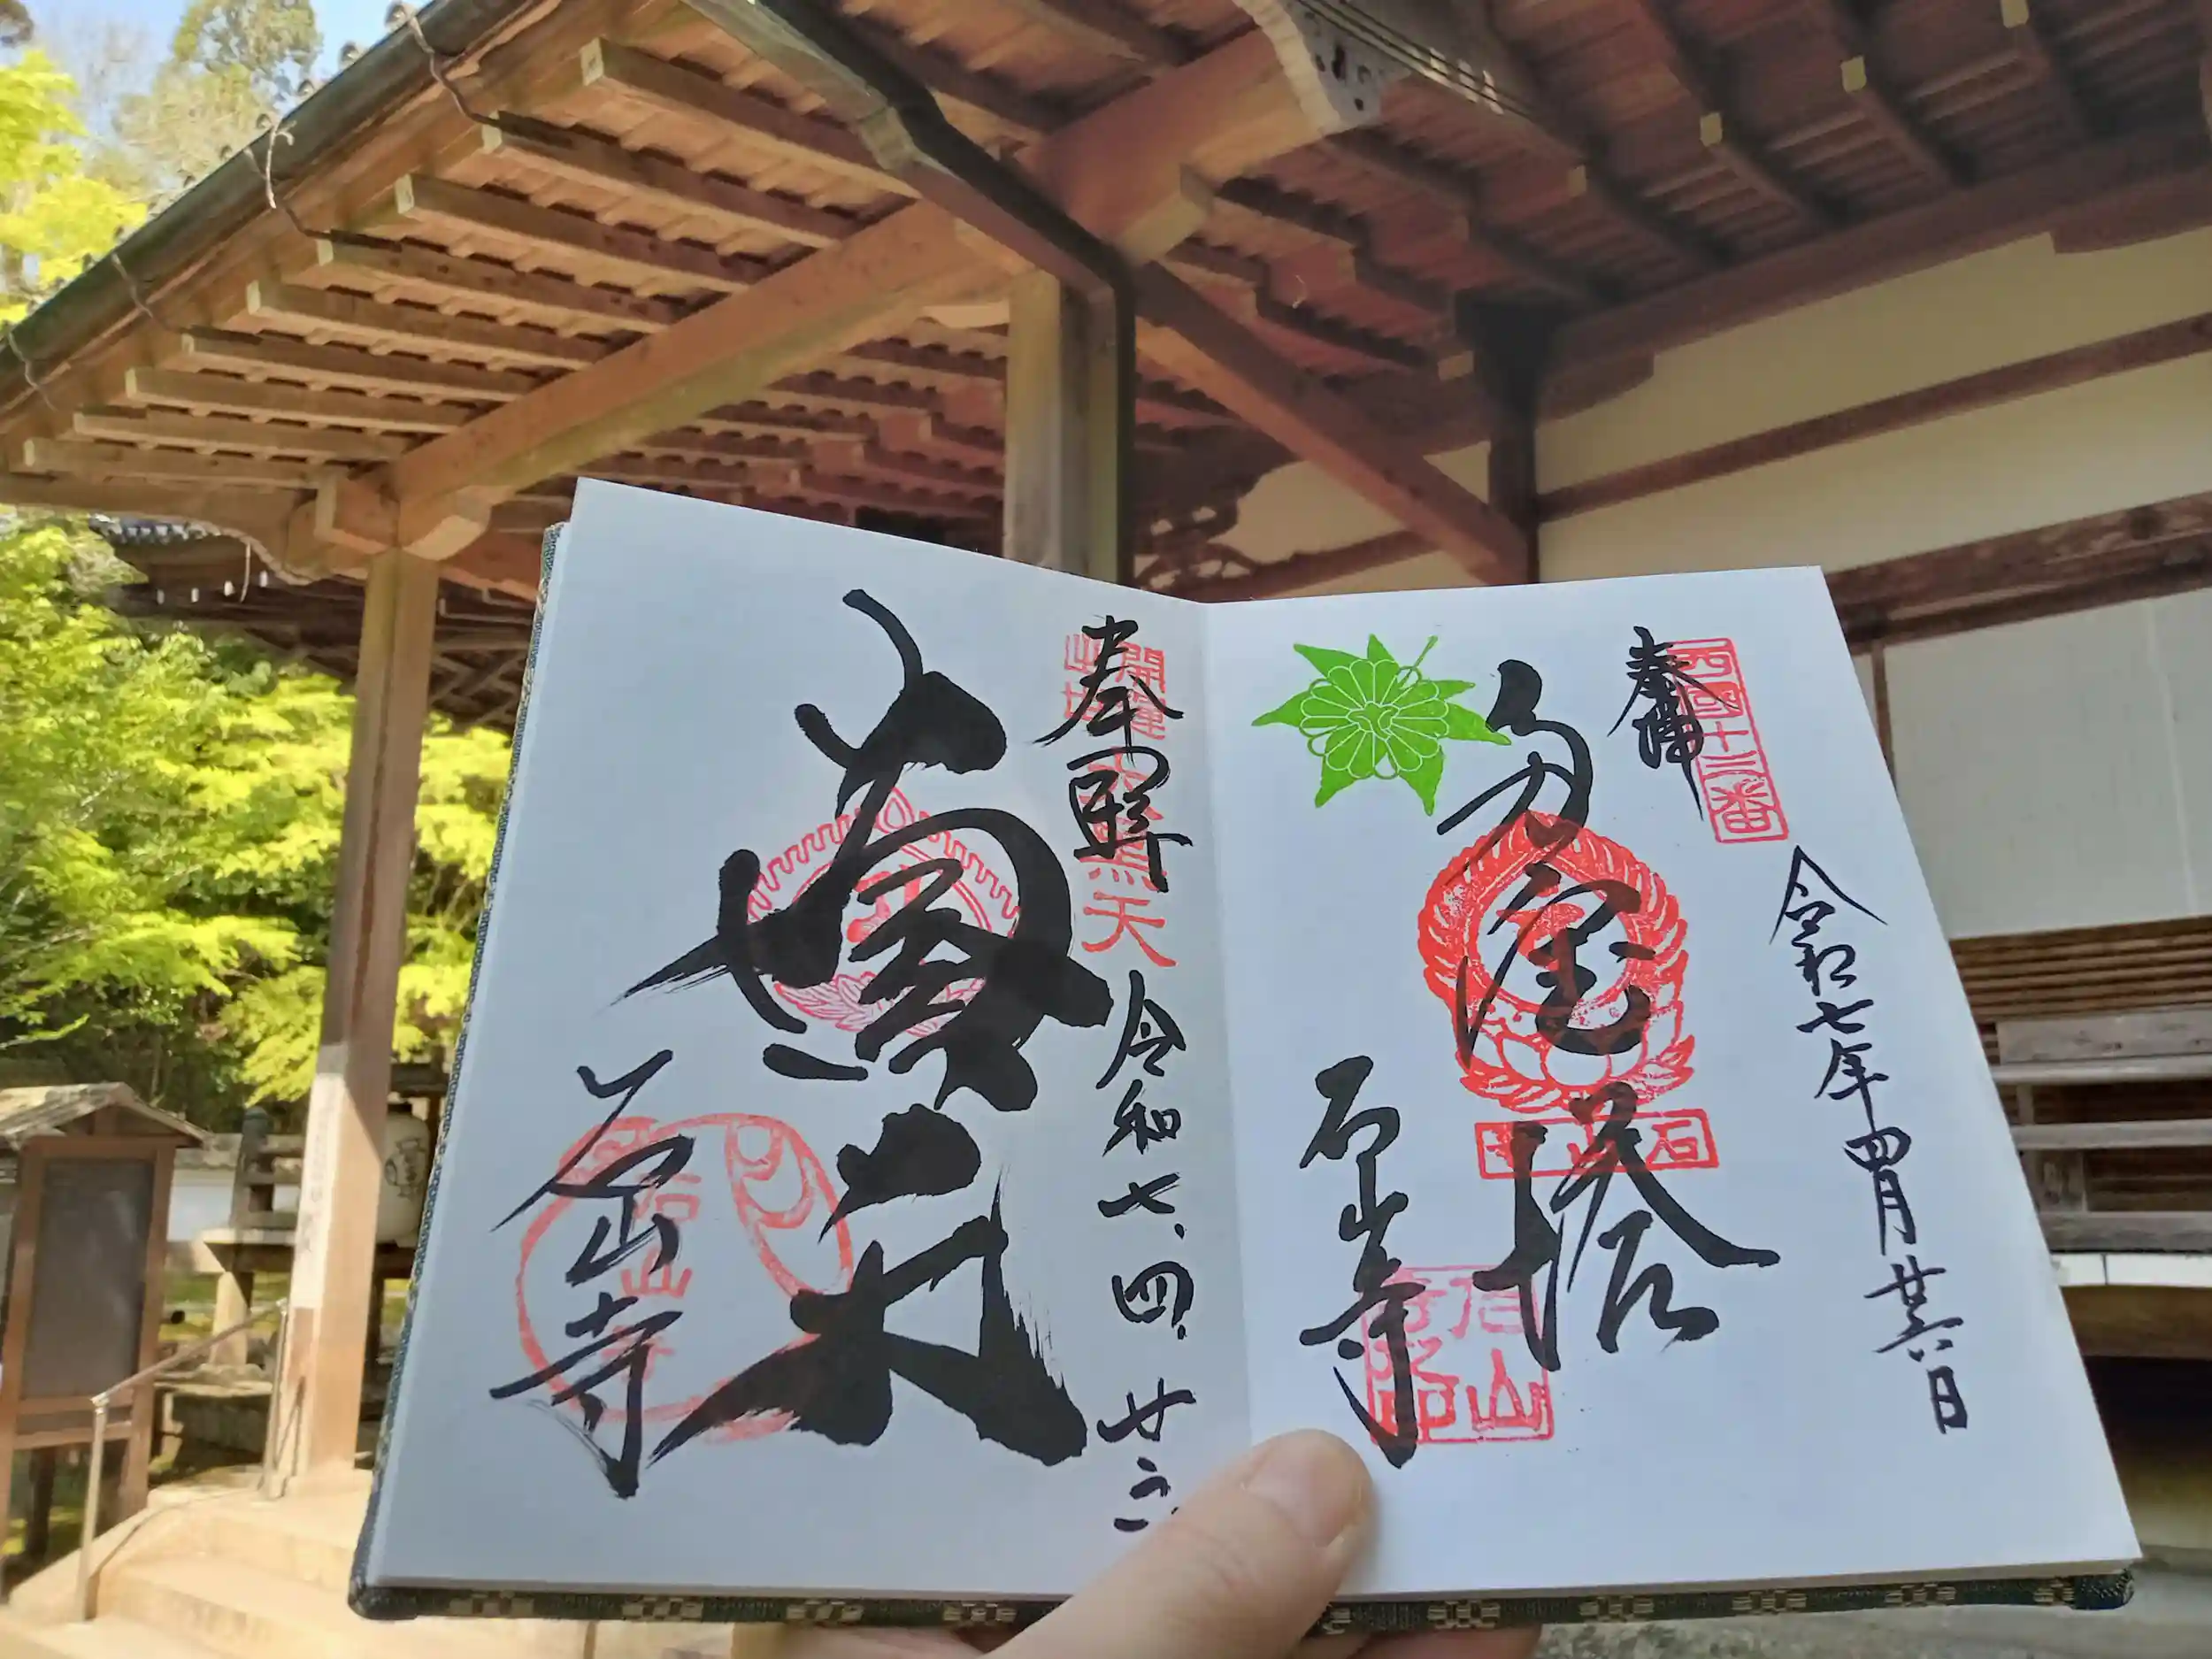 奉拝
西國十三番
令和七年四月廿六日
多宝塔
石山寺
石山寺
開運
出世
大黒天
令和七.四.廿六
石山寺